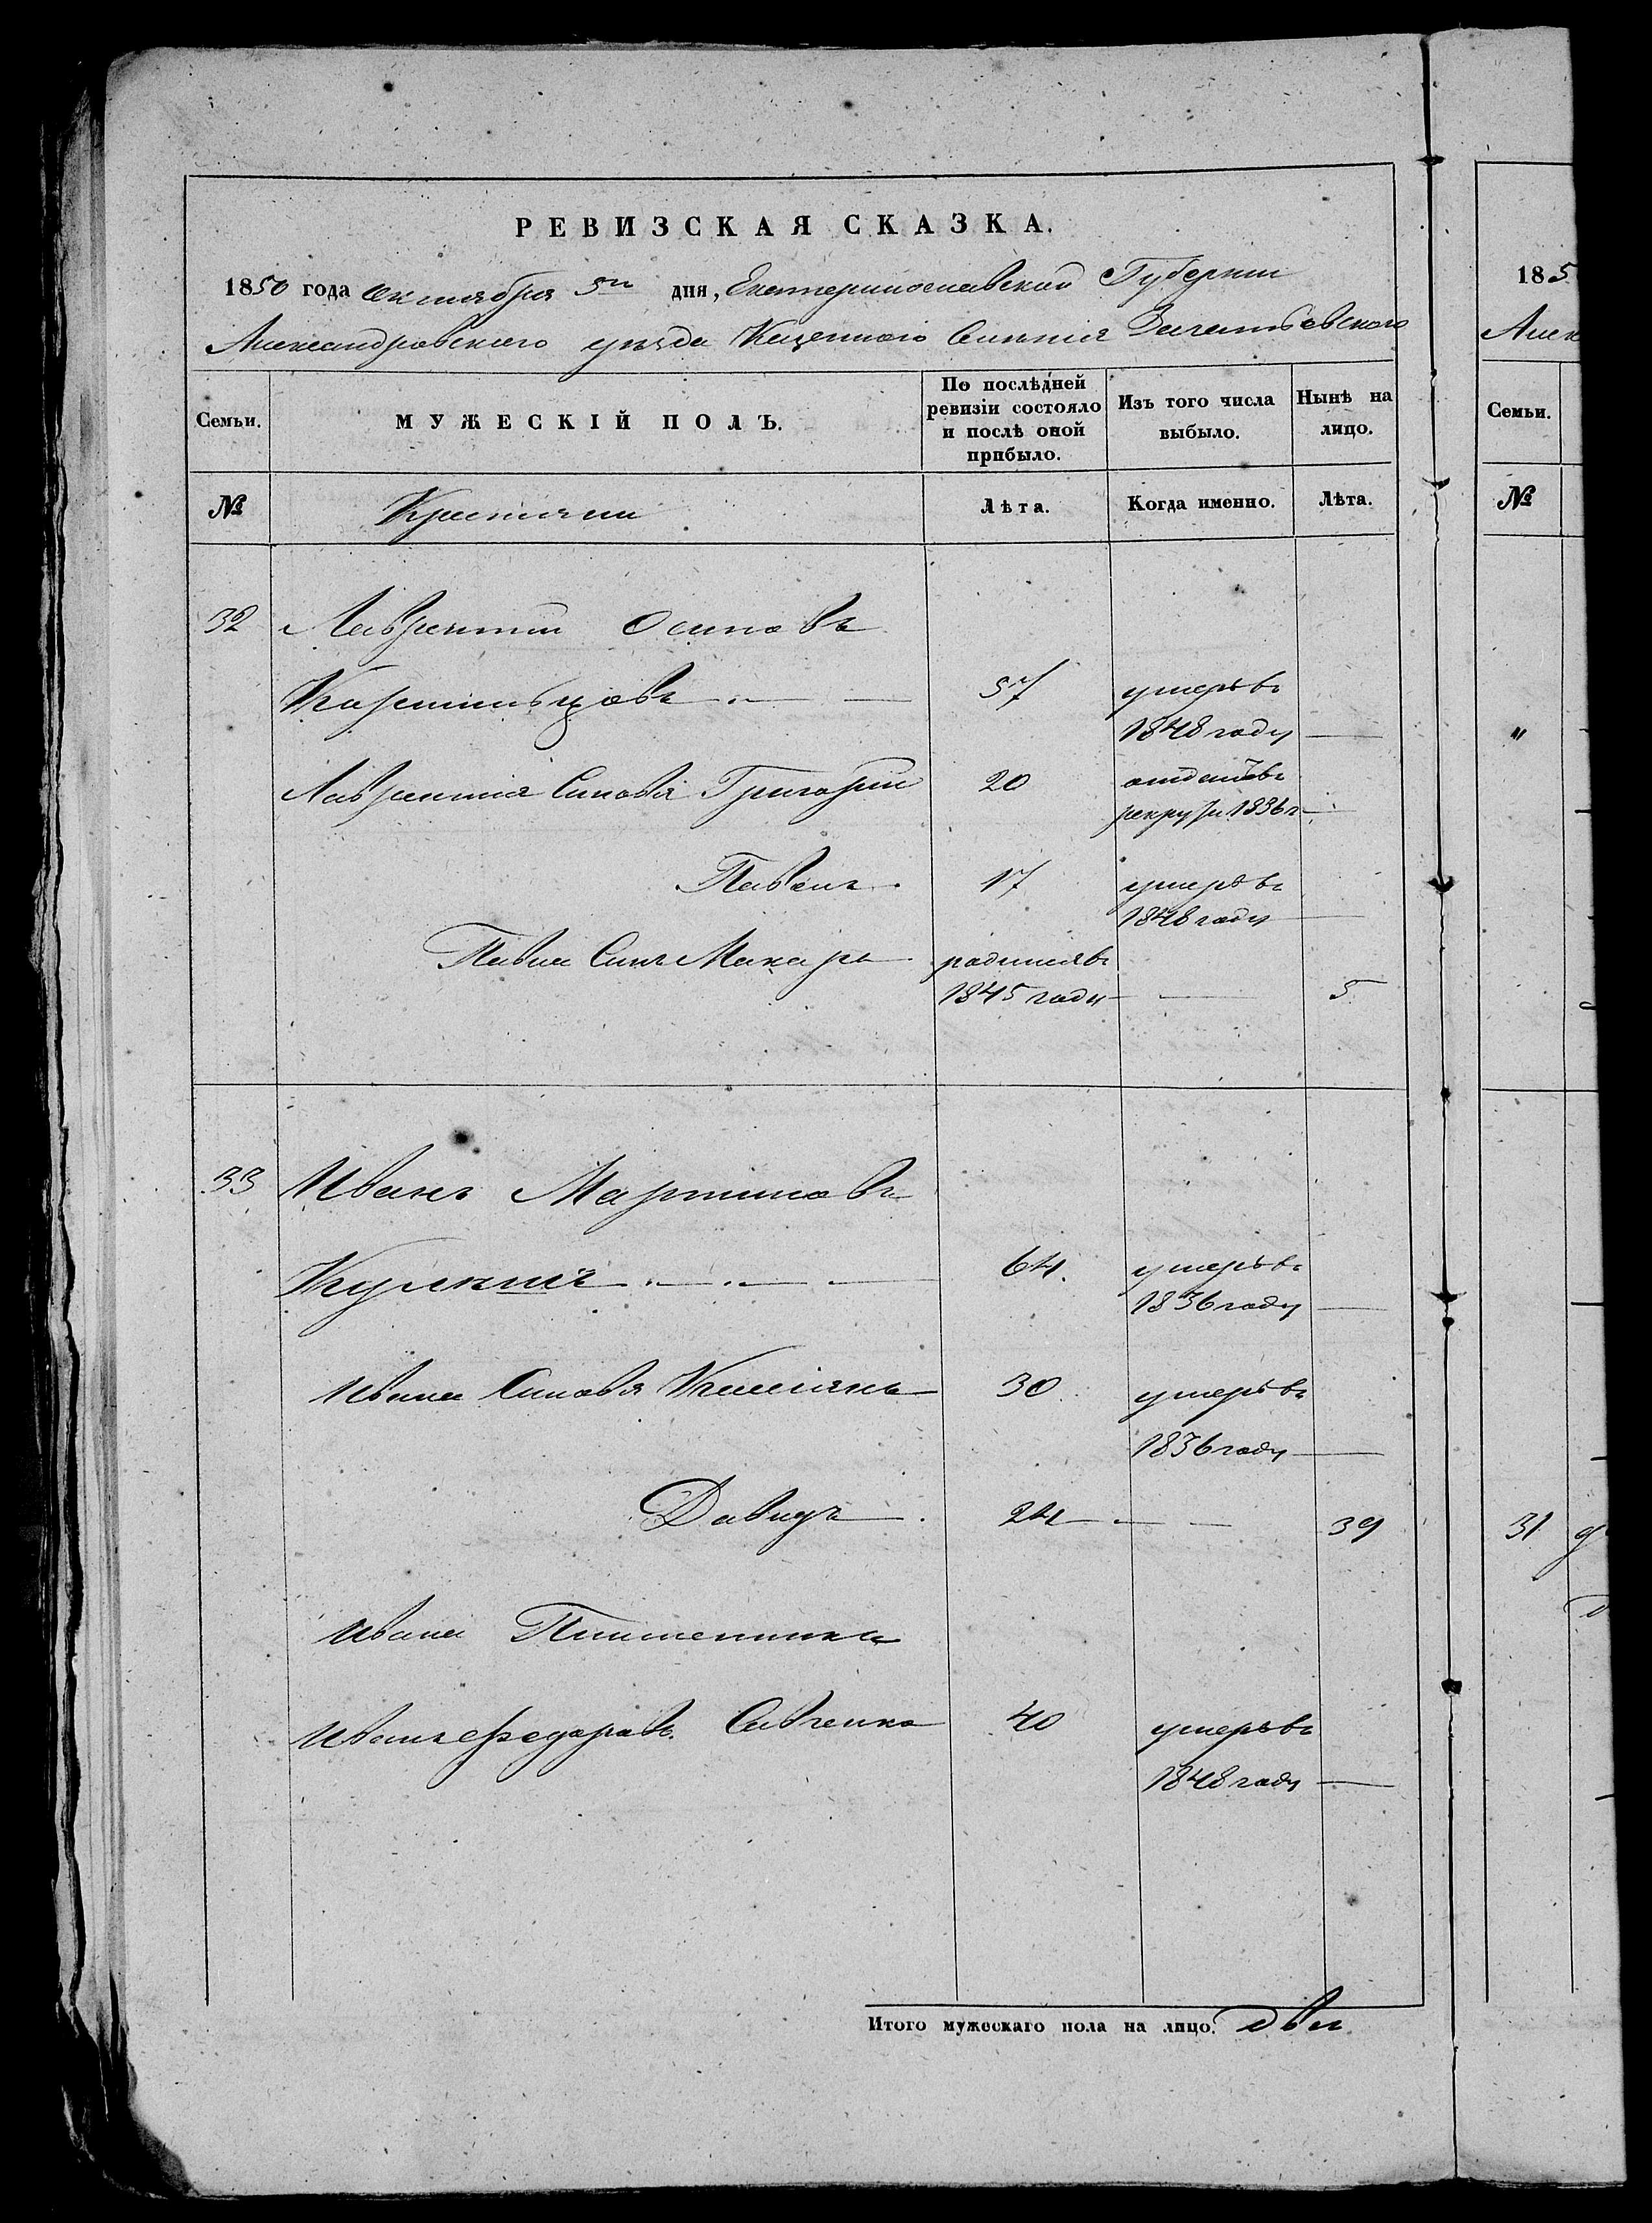 РЕВИЗСКАЯ СКАЗКА.
1850 года Октября 5го дня, Екатеринославской Губернии
Александровского уезда Казенного Имения
Семьи.
МУЖЕСКІЙ ПОЛЪ.
По послѣдней ревизіи состояло и послѣ оной прибыло.
Изъ того числа выбыло.
Нынѣ на лицо.
№
Крестьяне
Лѣта.
Когда именно.
Лѣта.
32 Лаврентий Осиповъ
57 умеръ въ
1848 году
Лаврентия Сыновья Григорий 20 отданъ въ
рекруты 1836 г
Павелъ 17 умеръ въ
1848 году
Павла Сынъ Макаръ родился въ
1845 году 5
33 Иванъ Мартиновъ
64. умеръ въ
1836 году
Ивана Сыновья 30. умеръ въ
1836 году
Давидъ 24 39
Ивана
Иванъ Федоровъ. Савченко 40 умеръ въ
1848 году
Итого мужескаго пола на лицо. два
185
Алек
Семьи.
№
"
31